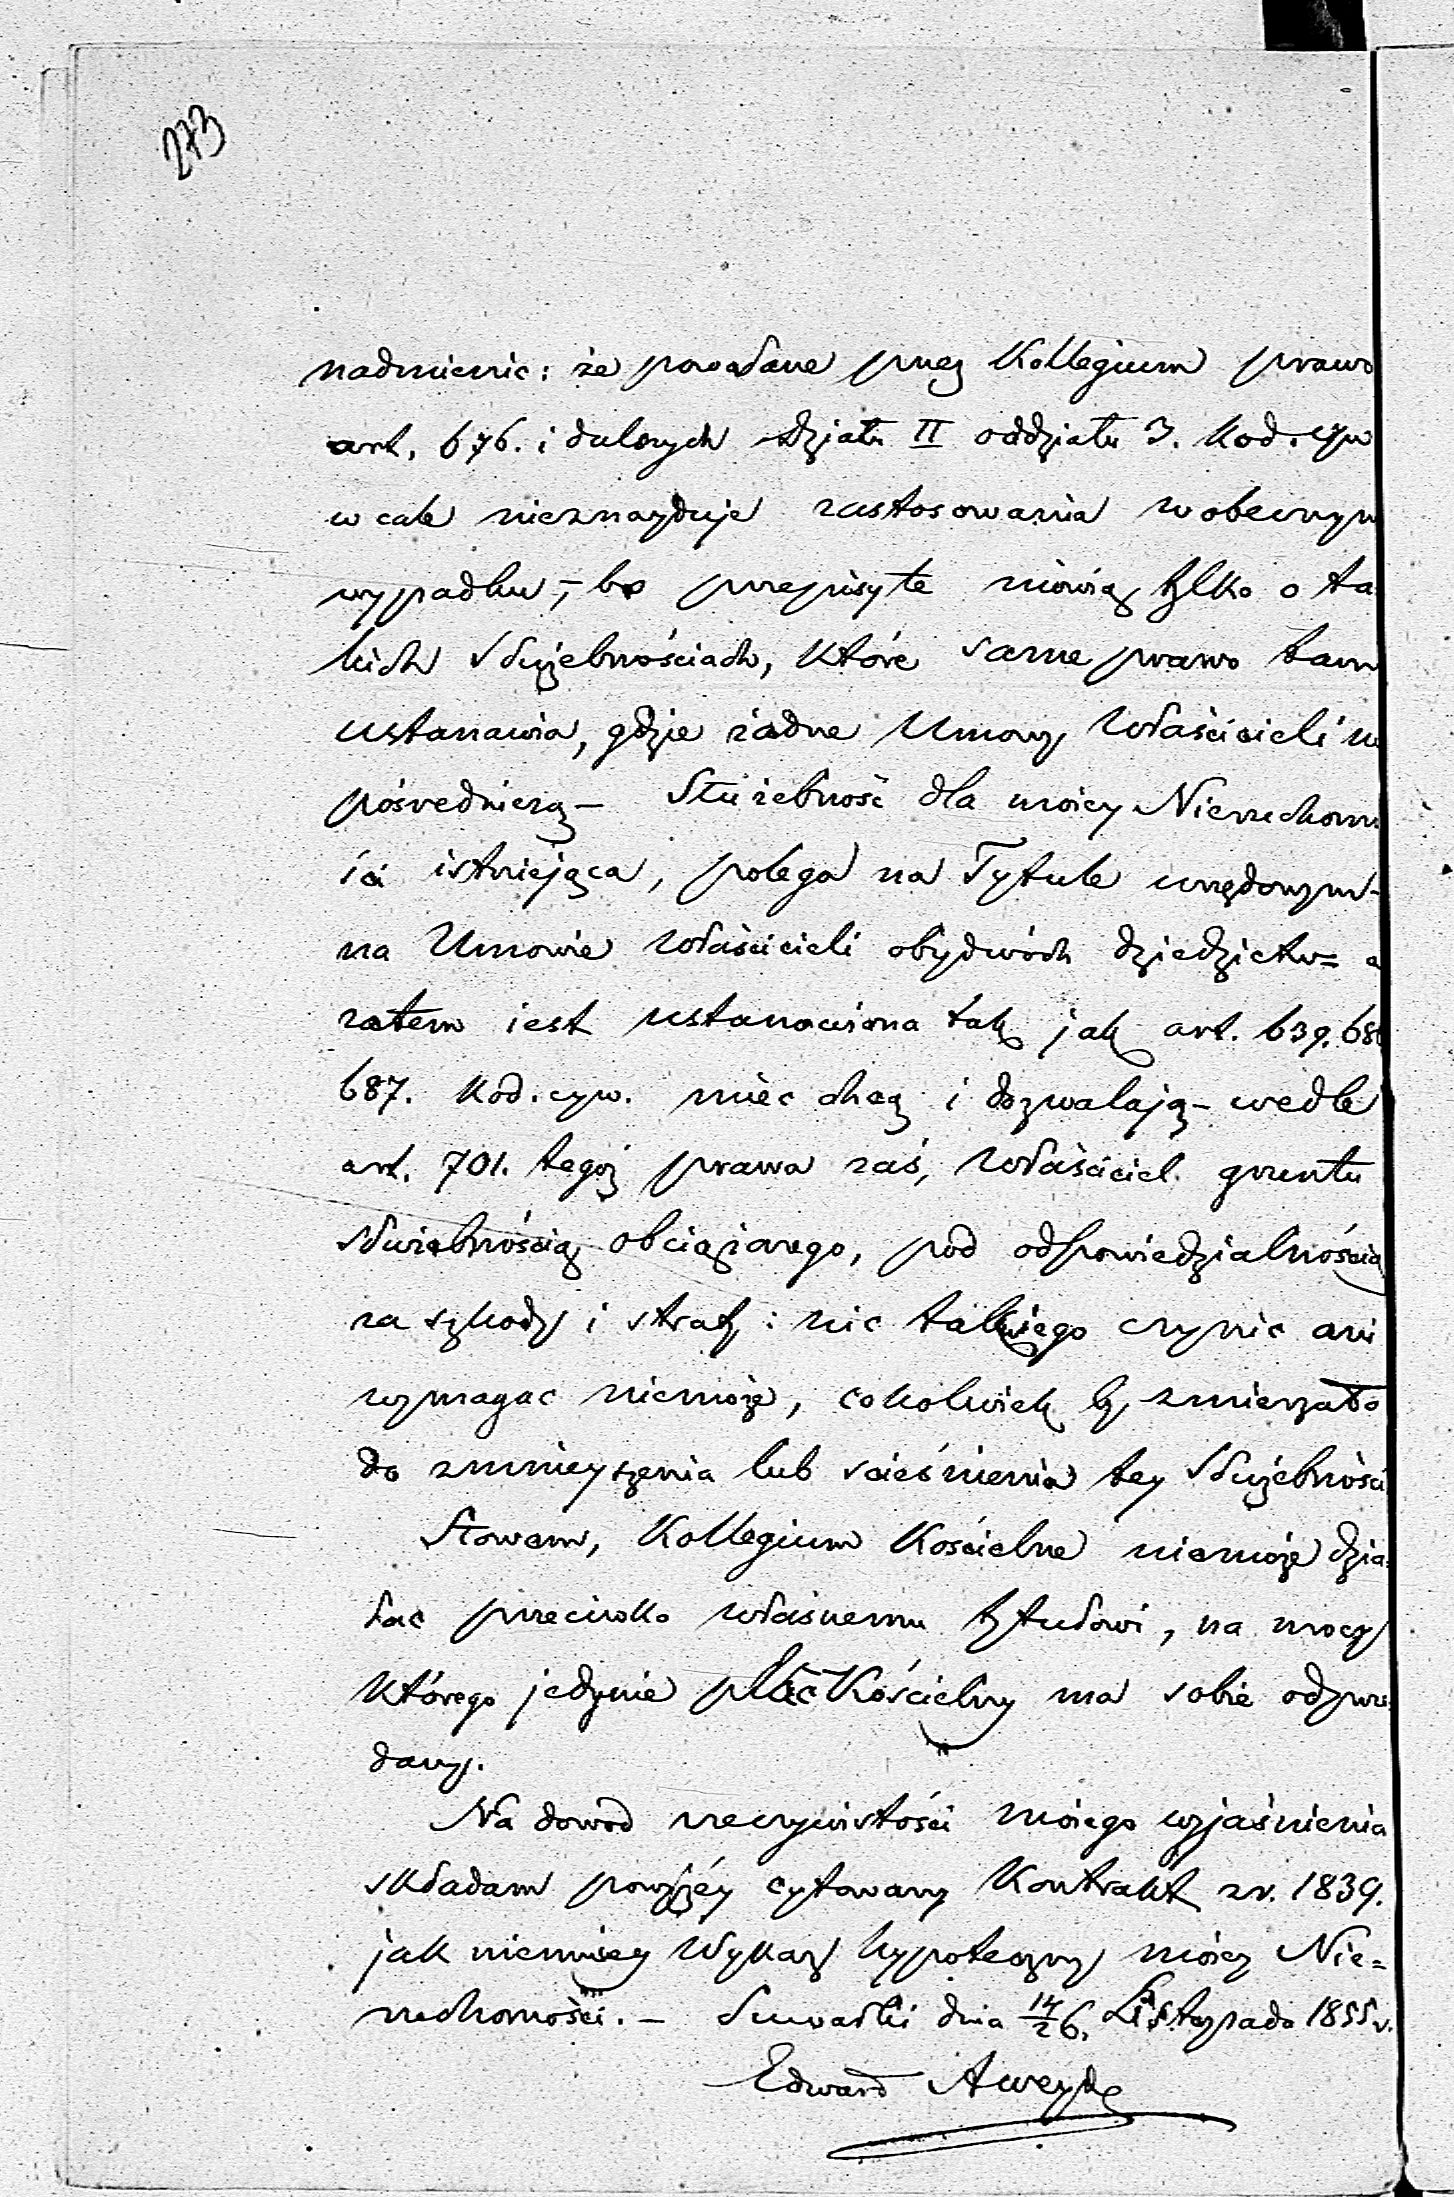 273
nadmienić: że powołane przez Kollegium prawo
art. 676. i dalszych działu II oddziału 3. Kod. cyw
wcale nieznayduje zastosowania w obecnym
wypadku, – bo przepisy te mówią tylko o ta
kich służebnościach, które same prawo tam
ustanawia, gdzie żadne Umowy Właścicieli nie
pośredniczą – Służebność dla moiey Nieruchomo
ści istniejąca, polega na Tytule urzędowym –
na Umowie Właścicieli obydwóch dziedzictw = a
zatem iest ustanowiona tak jak art. 639. 686
687. Kod. cyw. mieć chcą i dozwalają – wedle
art. 701. tegoż prawa zaś, Właściciel gruntu
służebnością obciążonego, pod odpowiedzialnością
za szkody i straty: nic takiego czynić ani
wymagać niemoże, cokolwiek by zmierzało
do zmnieyszenia lub ścieśnienia tey służebności
Słowem, Kollegium Kościelne niemoże dzia=
łać przeciwko własnemu tytułowi, na mocy
którego jedynie plac Kościelny ma sobie odprze
dany.
Na dowód rzeczywistości moiego wyjaśnienia
składam powyżéy cytowany Kontrakt z r. 1839.
jak niemniey Wykaz hypoteczny moiey Nie=
ruchomości. – Suwałki dnia 14/26. Listopada 1855 r.
Edward Aweyde